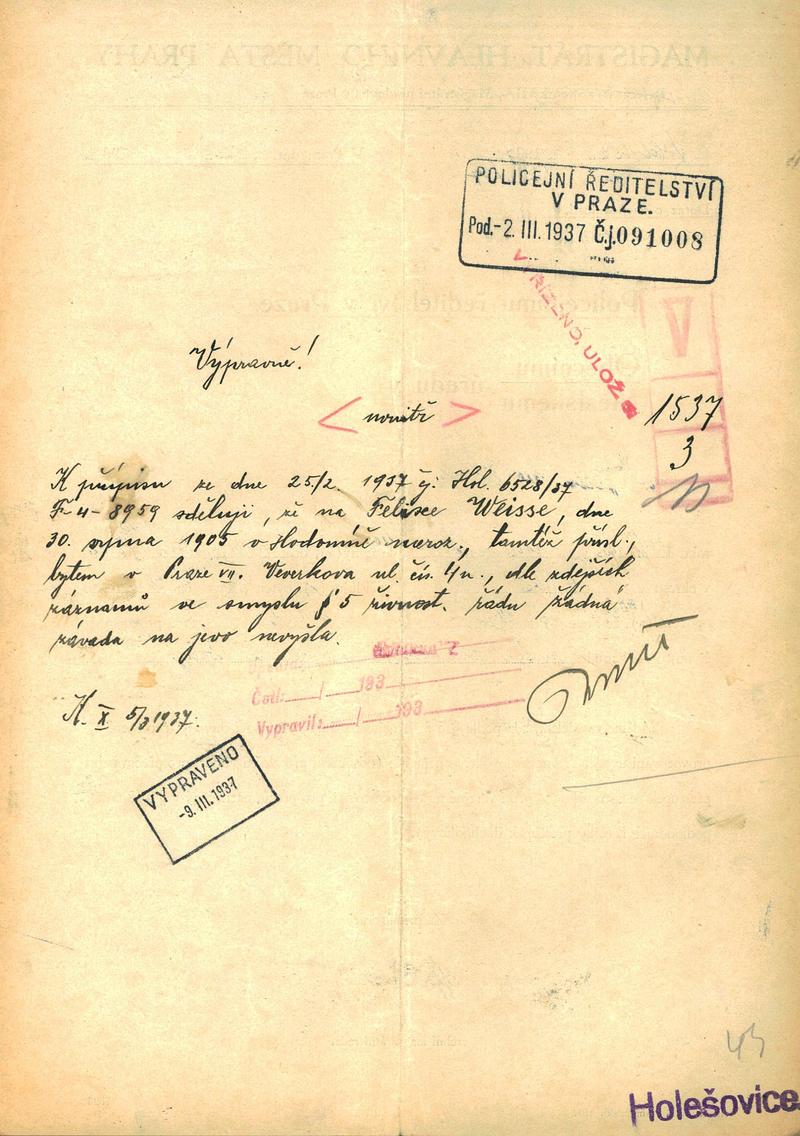 POLICEJNÍ ŘEDITELSTVÍ
V PRAZE.
Pod.-2. III. 1937 Č.j. 091008
VYŘÍZENO, ULOŽ
V
Výpravně!
< >
1537
3
K přípisu ze dne 25/2. 1937 čj: Hol. 6528/37
F-4-8959 sděluji, že na Felixe Weisse, dne
30. srpna 1905 v Hodoníně naroz., tamtéž přísl.,
bytem v Praze VII. Veverkova ul. čís. 4 n., dle zdejších
záznamů ve smyslu § 5 živnost. řádu žádná
závada na jevo nevyšla.
Četl: / 193
Vypravil: / 193
K. X 5/3 1937.
VYPRAVENO
-9. III. 1937
Holešovice